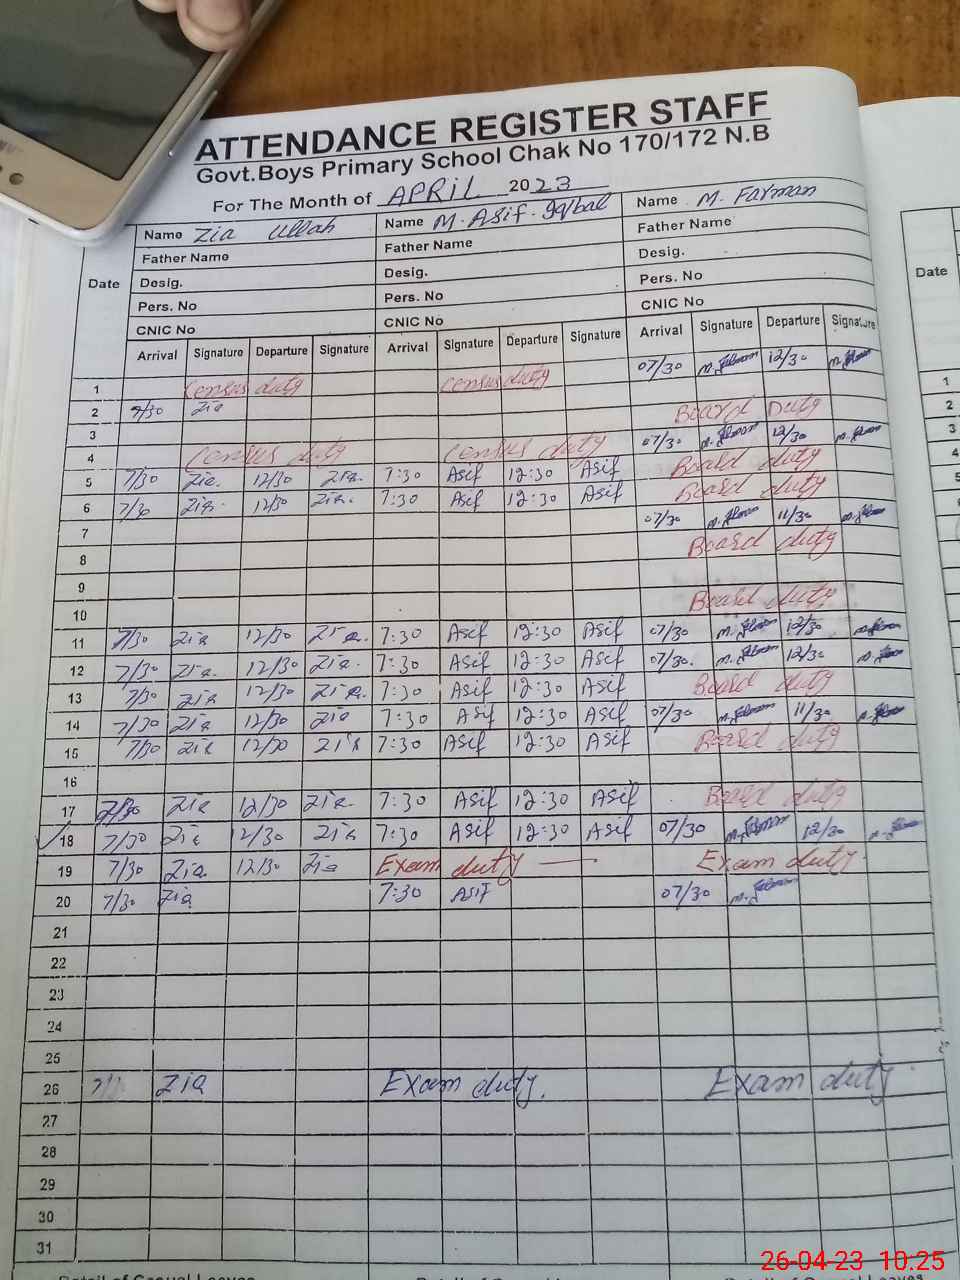 ATTENDANCE REGISTER STAFF
Govt.Boys Primary School Chak No 170/172 N.B
For The Month of APRIL 2023
Date Name Zia Ullah Name M. Asif Iqbal Name M. Farman Date
Father Name Father Name Father Name
Desig. Desig. Desig.
Pers. No Pers. No Pers. No
CNIC No CNIC No CNIC No
Arrival Signature Departure Signature Arrival Signature Departure Signature Arrival Signature Departure Signature
1 Census duty Census duty 07/30 12/30 1
2 7/30 Zia Board Duty 2
3 07/30 12/30 3
4 Census duty Census duty Board duty 4
5 7/30 Zia. 12/30 Zia. 7:30 Asif 12:30 Asif Board duty 5
6 7/30 Zia. 12/30 Zia. 7:30 Asif 12:30 Asif 07/30 11/30
7 Board duty
8
9 Board duty
10
11 7/30 Zia 12/30 Zia. 7:30 Asif 12:30 Asif 07/30 12/30
12 7/30 Zia. 12/30 Zia. 7:30 Asif 12:30 Asif 07/30. 12/30
13 7/30 Zia 12/30 Zia. 7:30 Asif 12:30 Asif Board duty
14 7/30 Zia 12/30 Zia 7:30 Asif 12:30 Asif 07/30 11/30
15 7/30 Zia 12/30 Zia 7:30 Asif 12:30 Asif Board duty
16
17 7/30 Zia 12/30 Zia. 7:30 Asif 12:30 Asif Board duty
18 7/30 Zia 12/30 Zia 7:30 Asif 12:30 Asif 07/30 12/30
19 7/30 Zia 12/30 Zia Exam duty Exam duty
20 7/30 Zia. 7:30 Asif 07/30
21
22
23
24
25
26 Zia Exam duty. Exam duty.
27
28
29
30
31
26-04-23 10:25